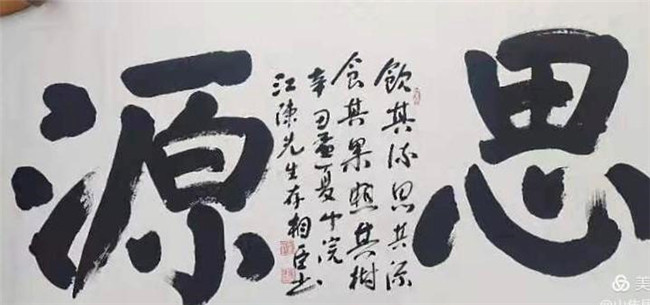 思
飲其流思其源
食其果照其樹
辛丑孟夏中浣
江陳先生存相臣书
源
美